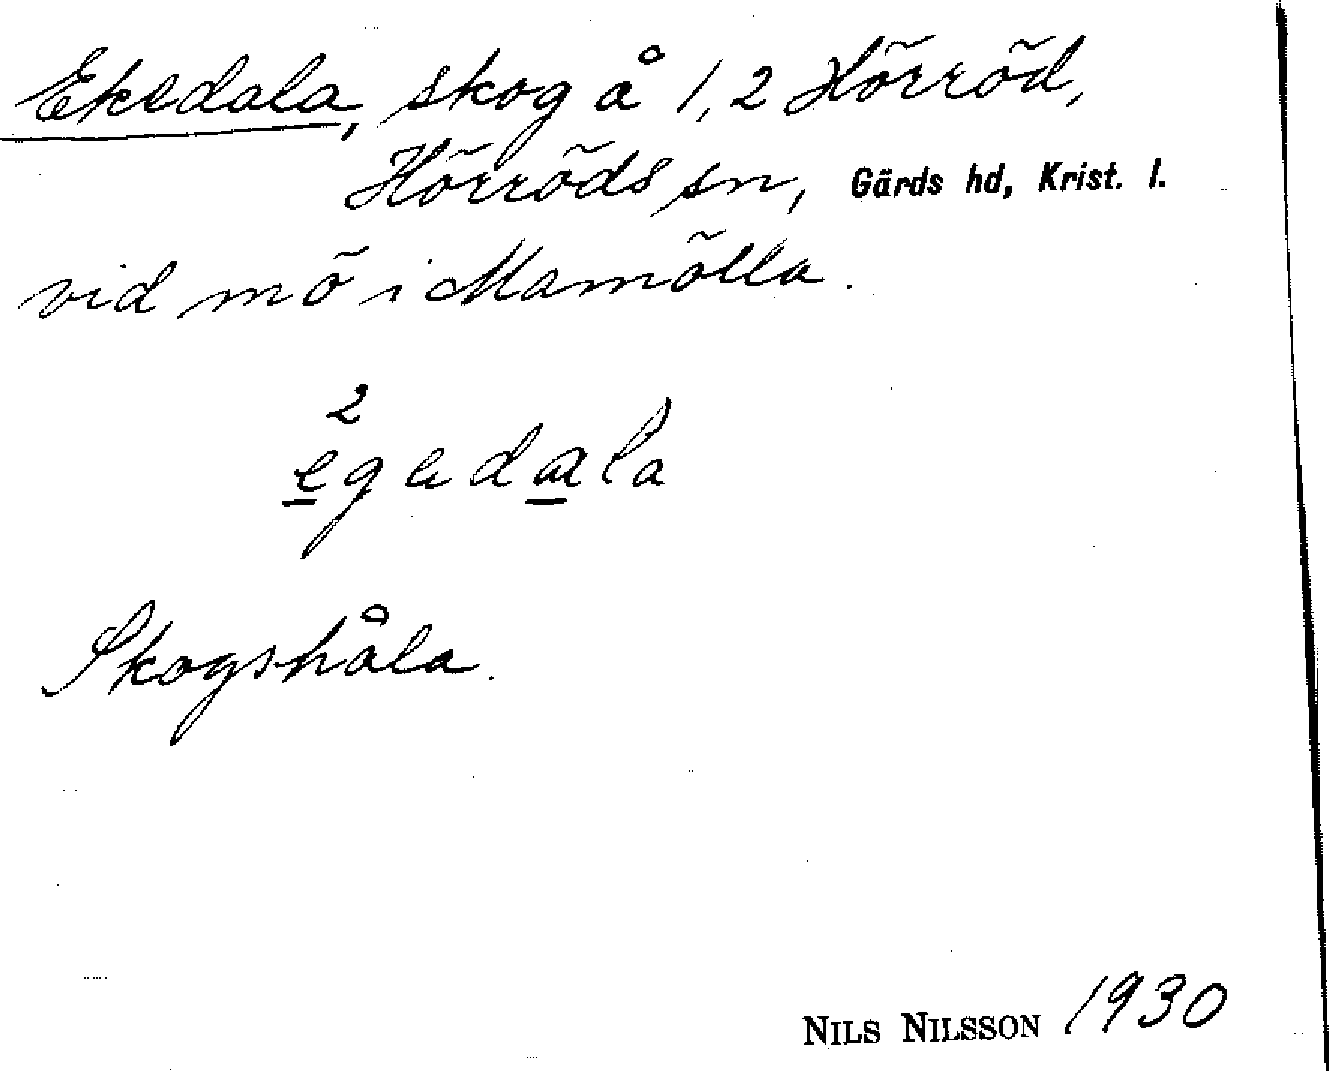 Ekedala, skog å 1,2 Hörröd,
Hörröds sn, Gärds hd, Krist. l.
vid mö i Mamölla.
2
egadala
Skogshåla.
NILS NILSSON 1930